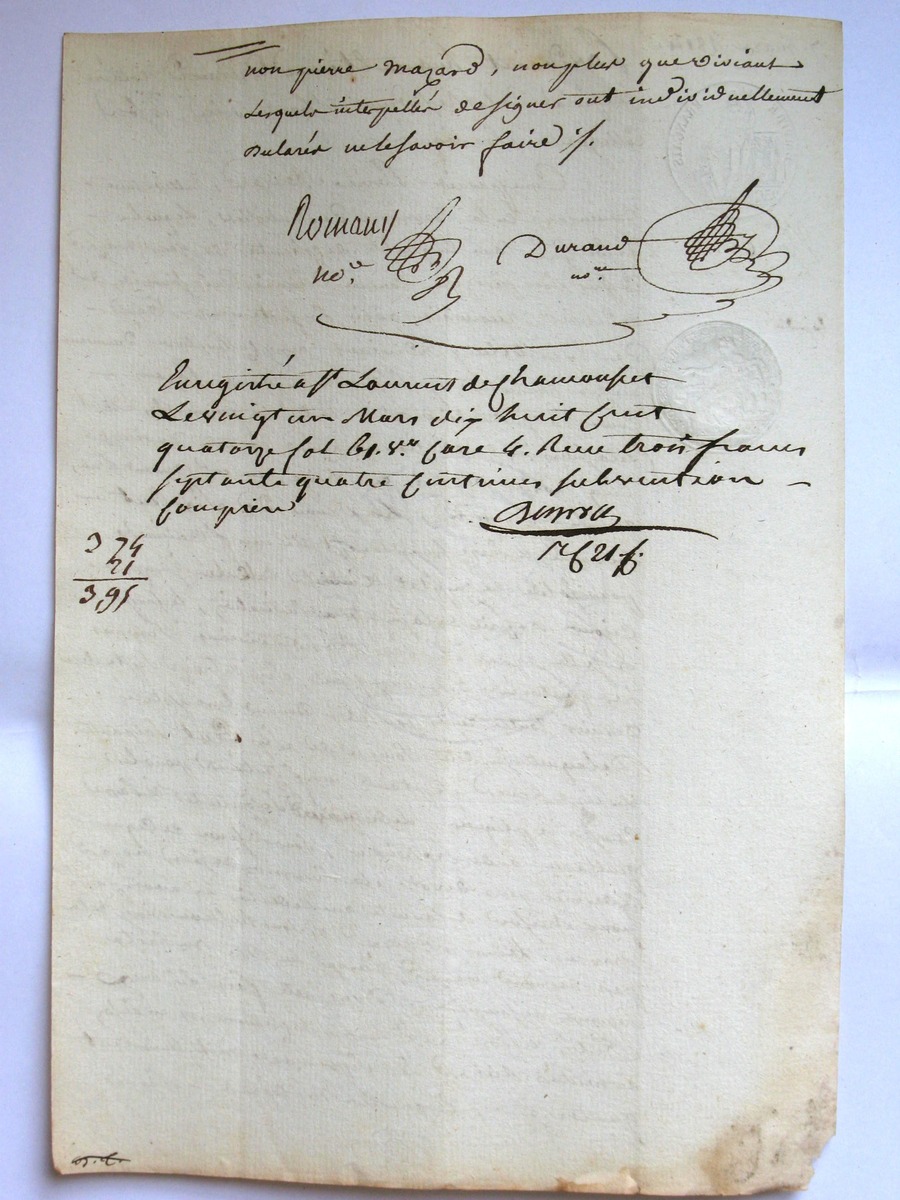 non pierre Mazard, non plus que Viviant
Lesquels interpellés de signer ont individuellement
Declarés ne le savoir faire ./.
Romany
no.re
Durand
no.re
Enregistré a St Laurent de Chamousset
Le vingt un Mars dix huit Cent
quatorze fol 61. v.° Case 4. Recu trois francs
septante quatre Centimes subvention
Comprise
3 74
21
3,95